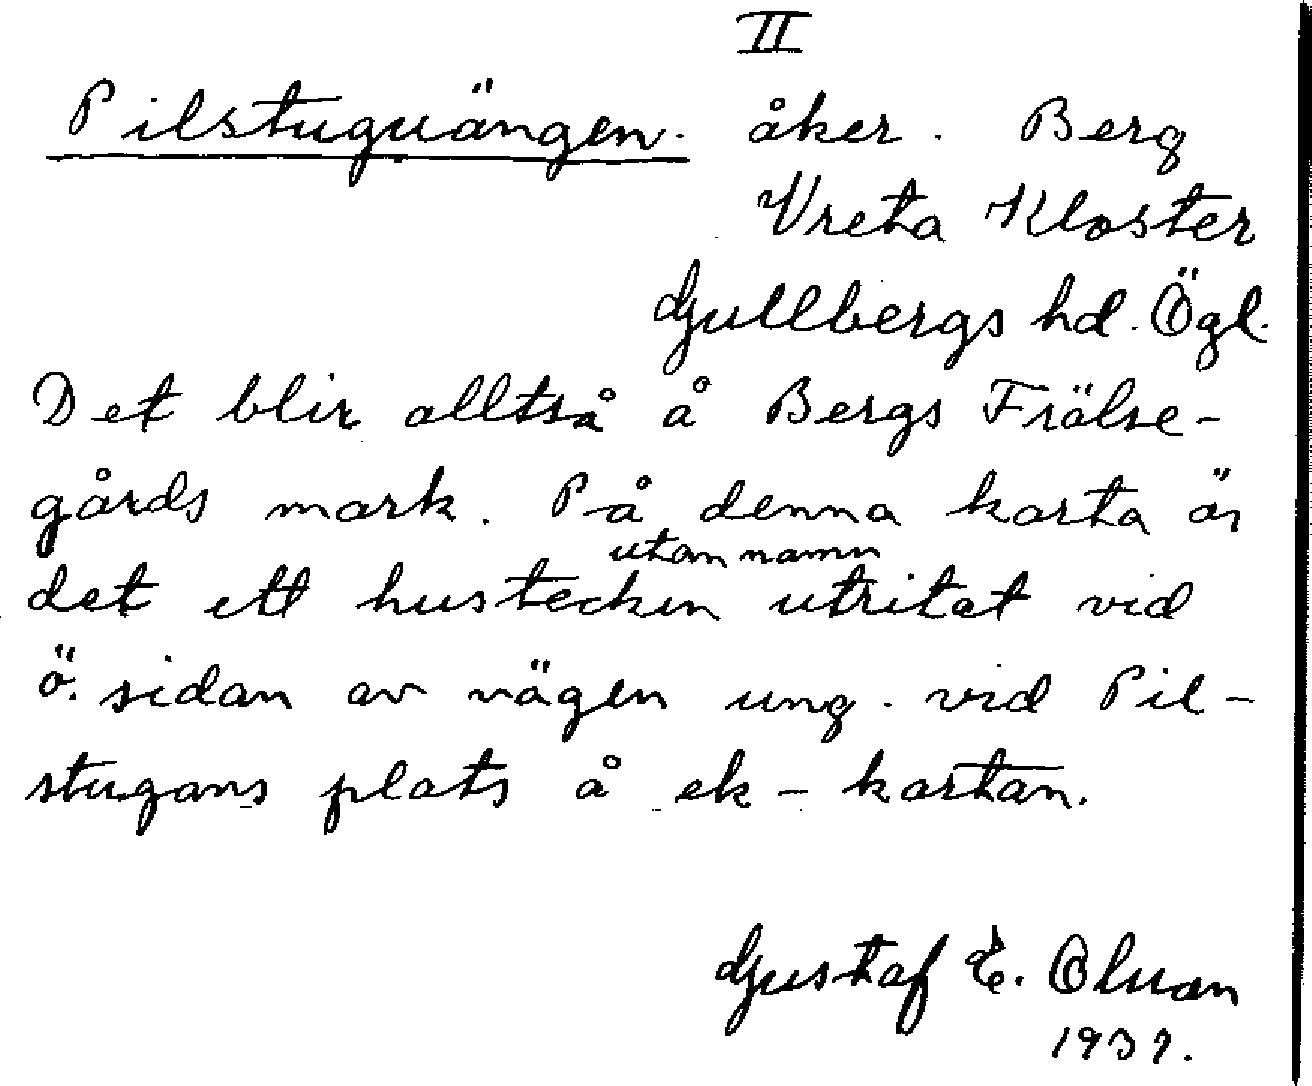 II
Pilstuguängen. åker. Berg
Vreta Kloster
Gullbergs hd. Ögl.
Det blir alltså å Bergs Frälse-
gårds mark. På denna karta är
utan namn
det ett hustecken utritat vid
ö. sidan av vägen ung. vid Pil-
stugans plats å ek-kartan.
Gustaf E. Olsson
1937.